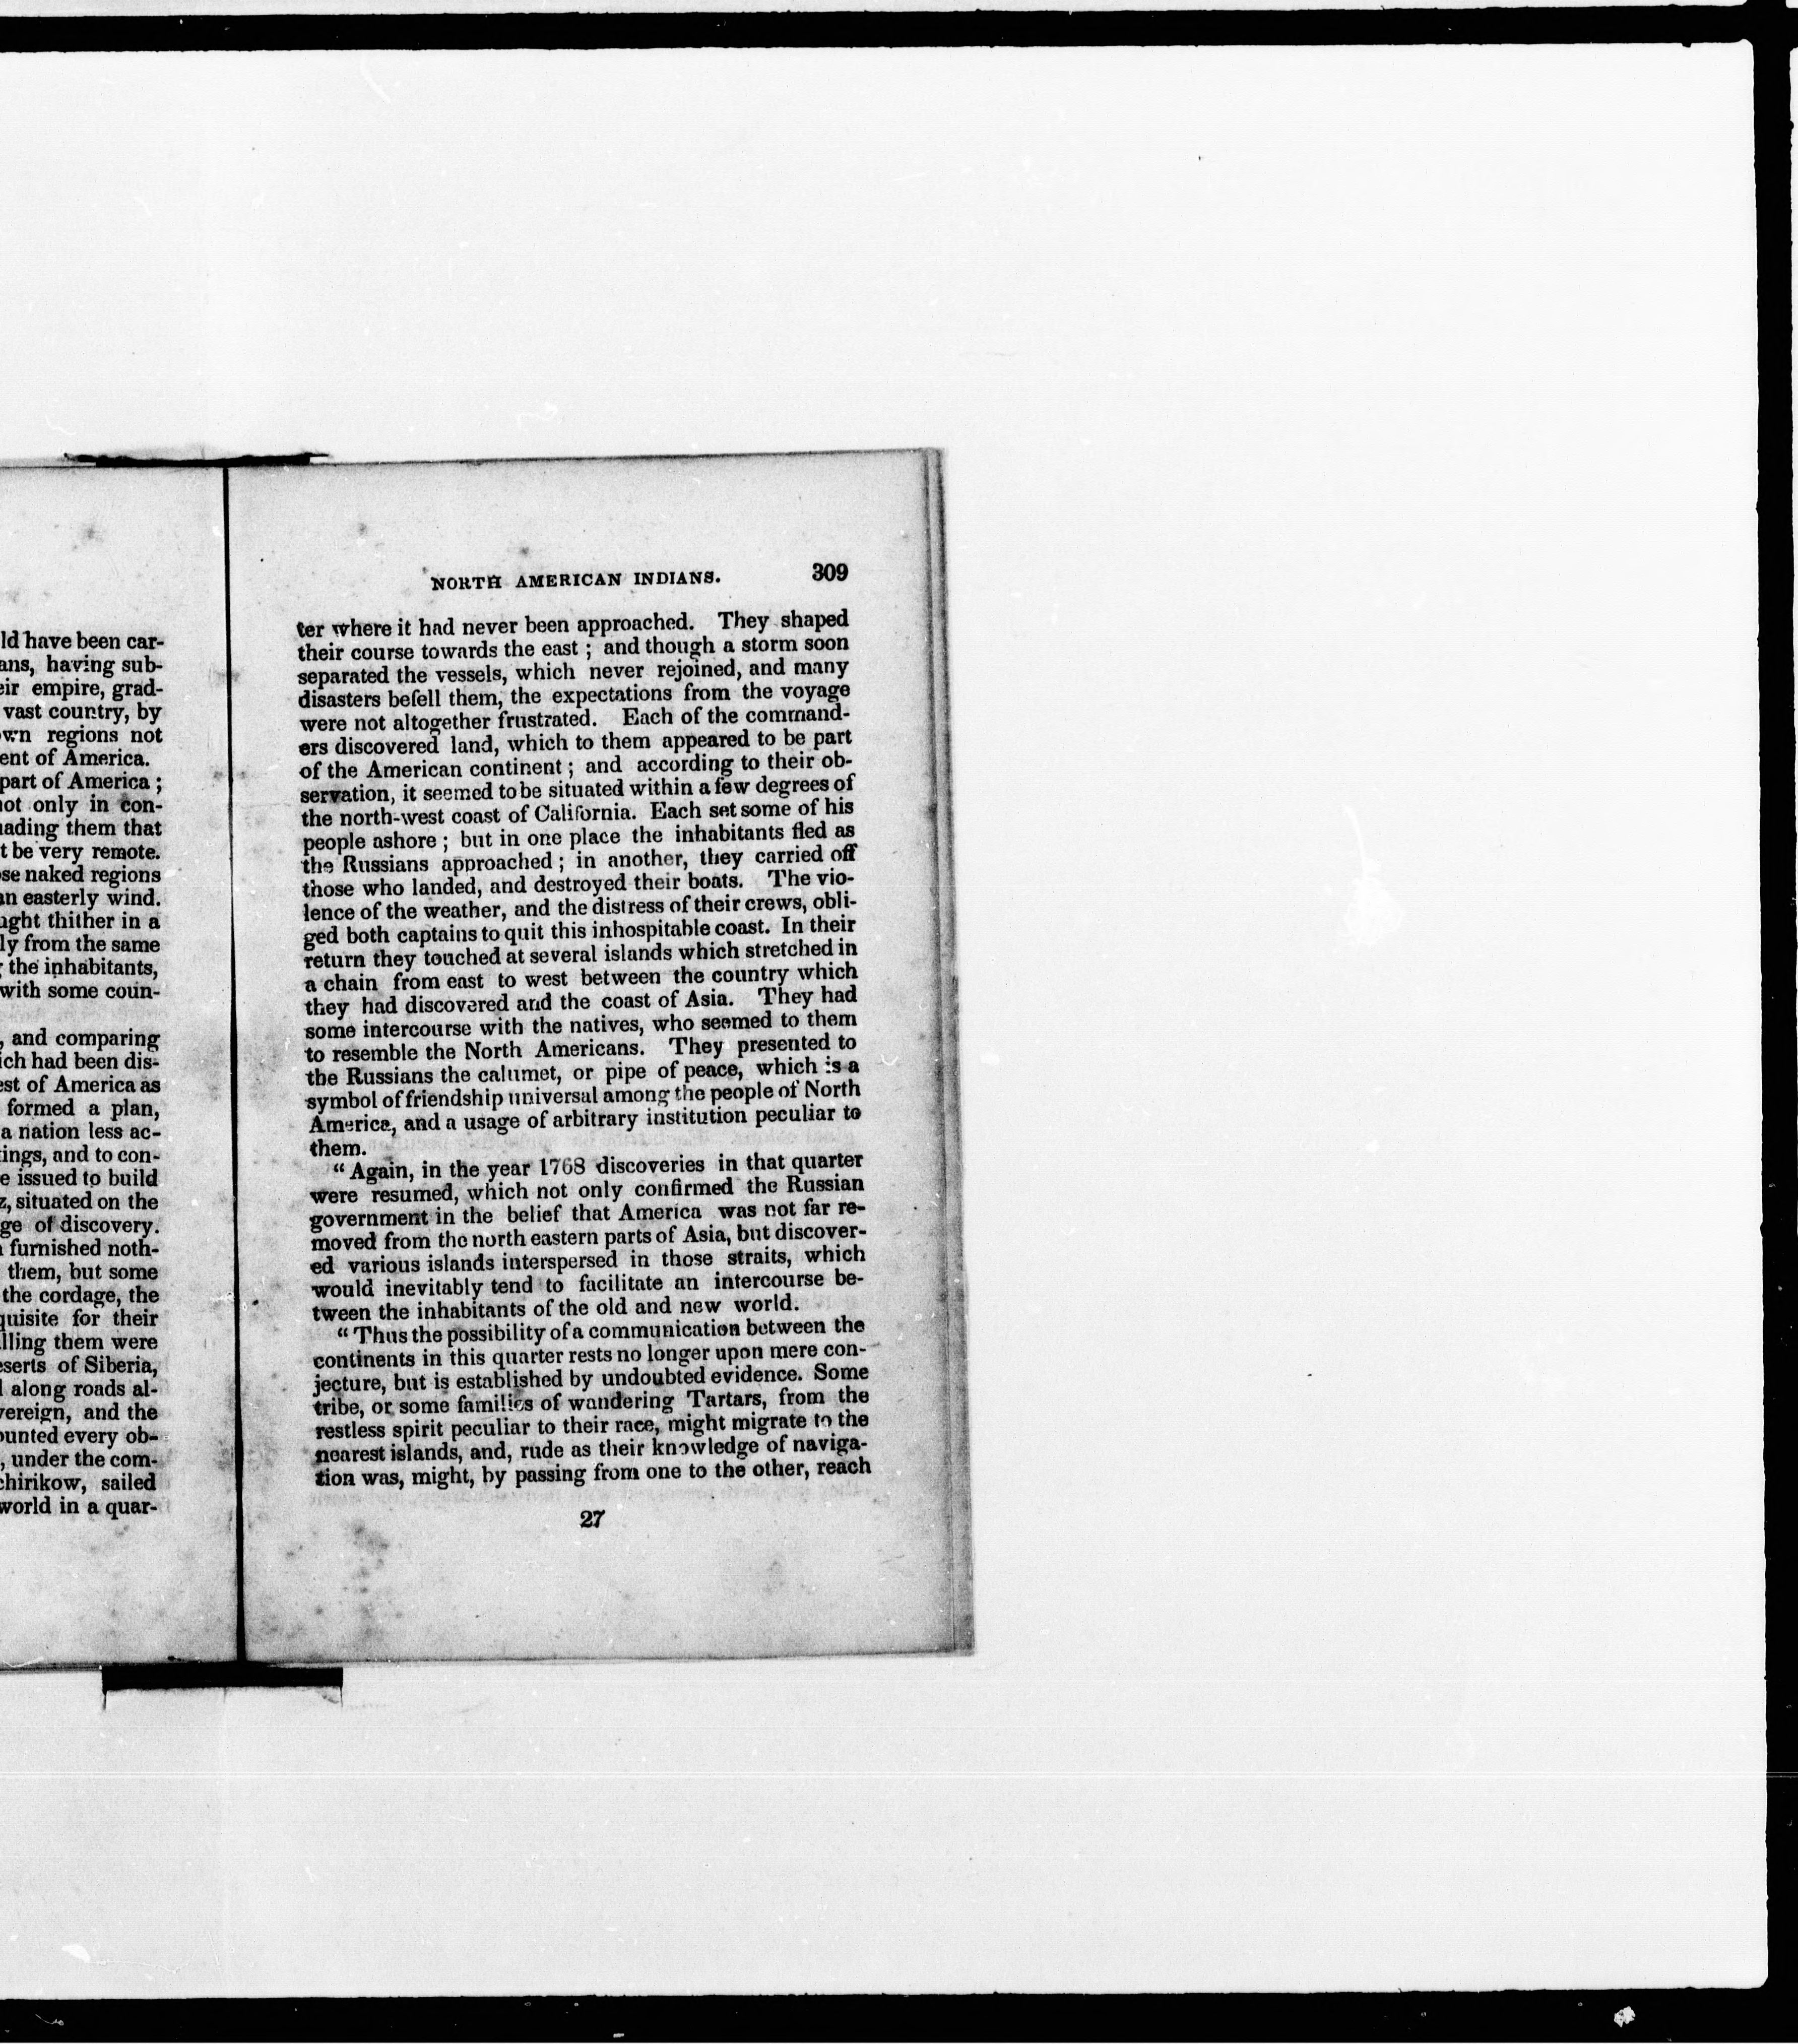 ld have been car-
ans, having sub-
eir empire, grad-
vast country, by
own regions not
ent of America.
part of America ;
not only in con-
uading them that
t be very remote.
ose naked regions
an easterly wind.
ught thither in a
ly from the same
the inhabitants,
with some coun-
, and comparing
ich had been dis-
est of America as
formed a plan,
a nation less ac-
tings, and to con-
e issued to build
z, situated on the
ge of discovery.
furnished noth-
them, but some
the cordage, the
quisite for their
lling them were
eserts of Siberia,
along roads al-
vereign, and the
ounted every ob-
, under the com-
chirikow, sailed
world in a quar-
NORTH AMERICAN INDIANS. 309
ter where it had never been approached. They shaped
their course towards the east ; and though a storm soon
separated the vessels, which never rejoined, and many
disasters befell them, the expectations from the voyage
were not altogether frustrated. Each of the command-
ers discovered land, which to them appeared to be part
of the American continent ; and according to their ob-
servation, it seemed to be situated within a few degrees of
the north-west coast of California. Each set some of his
people ashore ; but in one place the inhabitants fled as
the Russians approached ; in another, they carried off
those who landed, and destroyed their boats. The vio-
lence of the weather, and the distress of their crews, obli-
ged both captains to quit this inhospitable coast. In their
return they touched at several islands which stretched in
a chain from east to west between the country which
they had discovered and the coast of Asia. They had
some intercourse with the natives, who seemed to them
to resemble the North Americans. They presented to
the Russians the calumet, or pipe of peace, which is a
symbol of friendship universal among the people of North
America, and a usage of arbitrary institution peculiar to
them.
“ Again, in the year 1768 discoveries in that quarter
were resumed, which not only confirmed the Russian
government in the belief that America was not far re-
moved from the north eastern parts of Asia, but discover-
ed various islands interspersed in those straits, which
would inevitably tend to facilitate an intercourse be-
tween the inhabitants of the old and new world.
“ Thus the possibility of a communication between the
continents in this quarter rests no longer upon mere con-
jecture, but is established by undoubted evidence. Some
tribe, or some families of wandering Tartars, from the
restless spirit peculiar to their race, might migrate to the
nearest islands, and, rude as their knowledge of naviga-
tion was, might, by passing from one to the other, reach
27